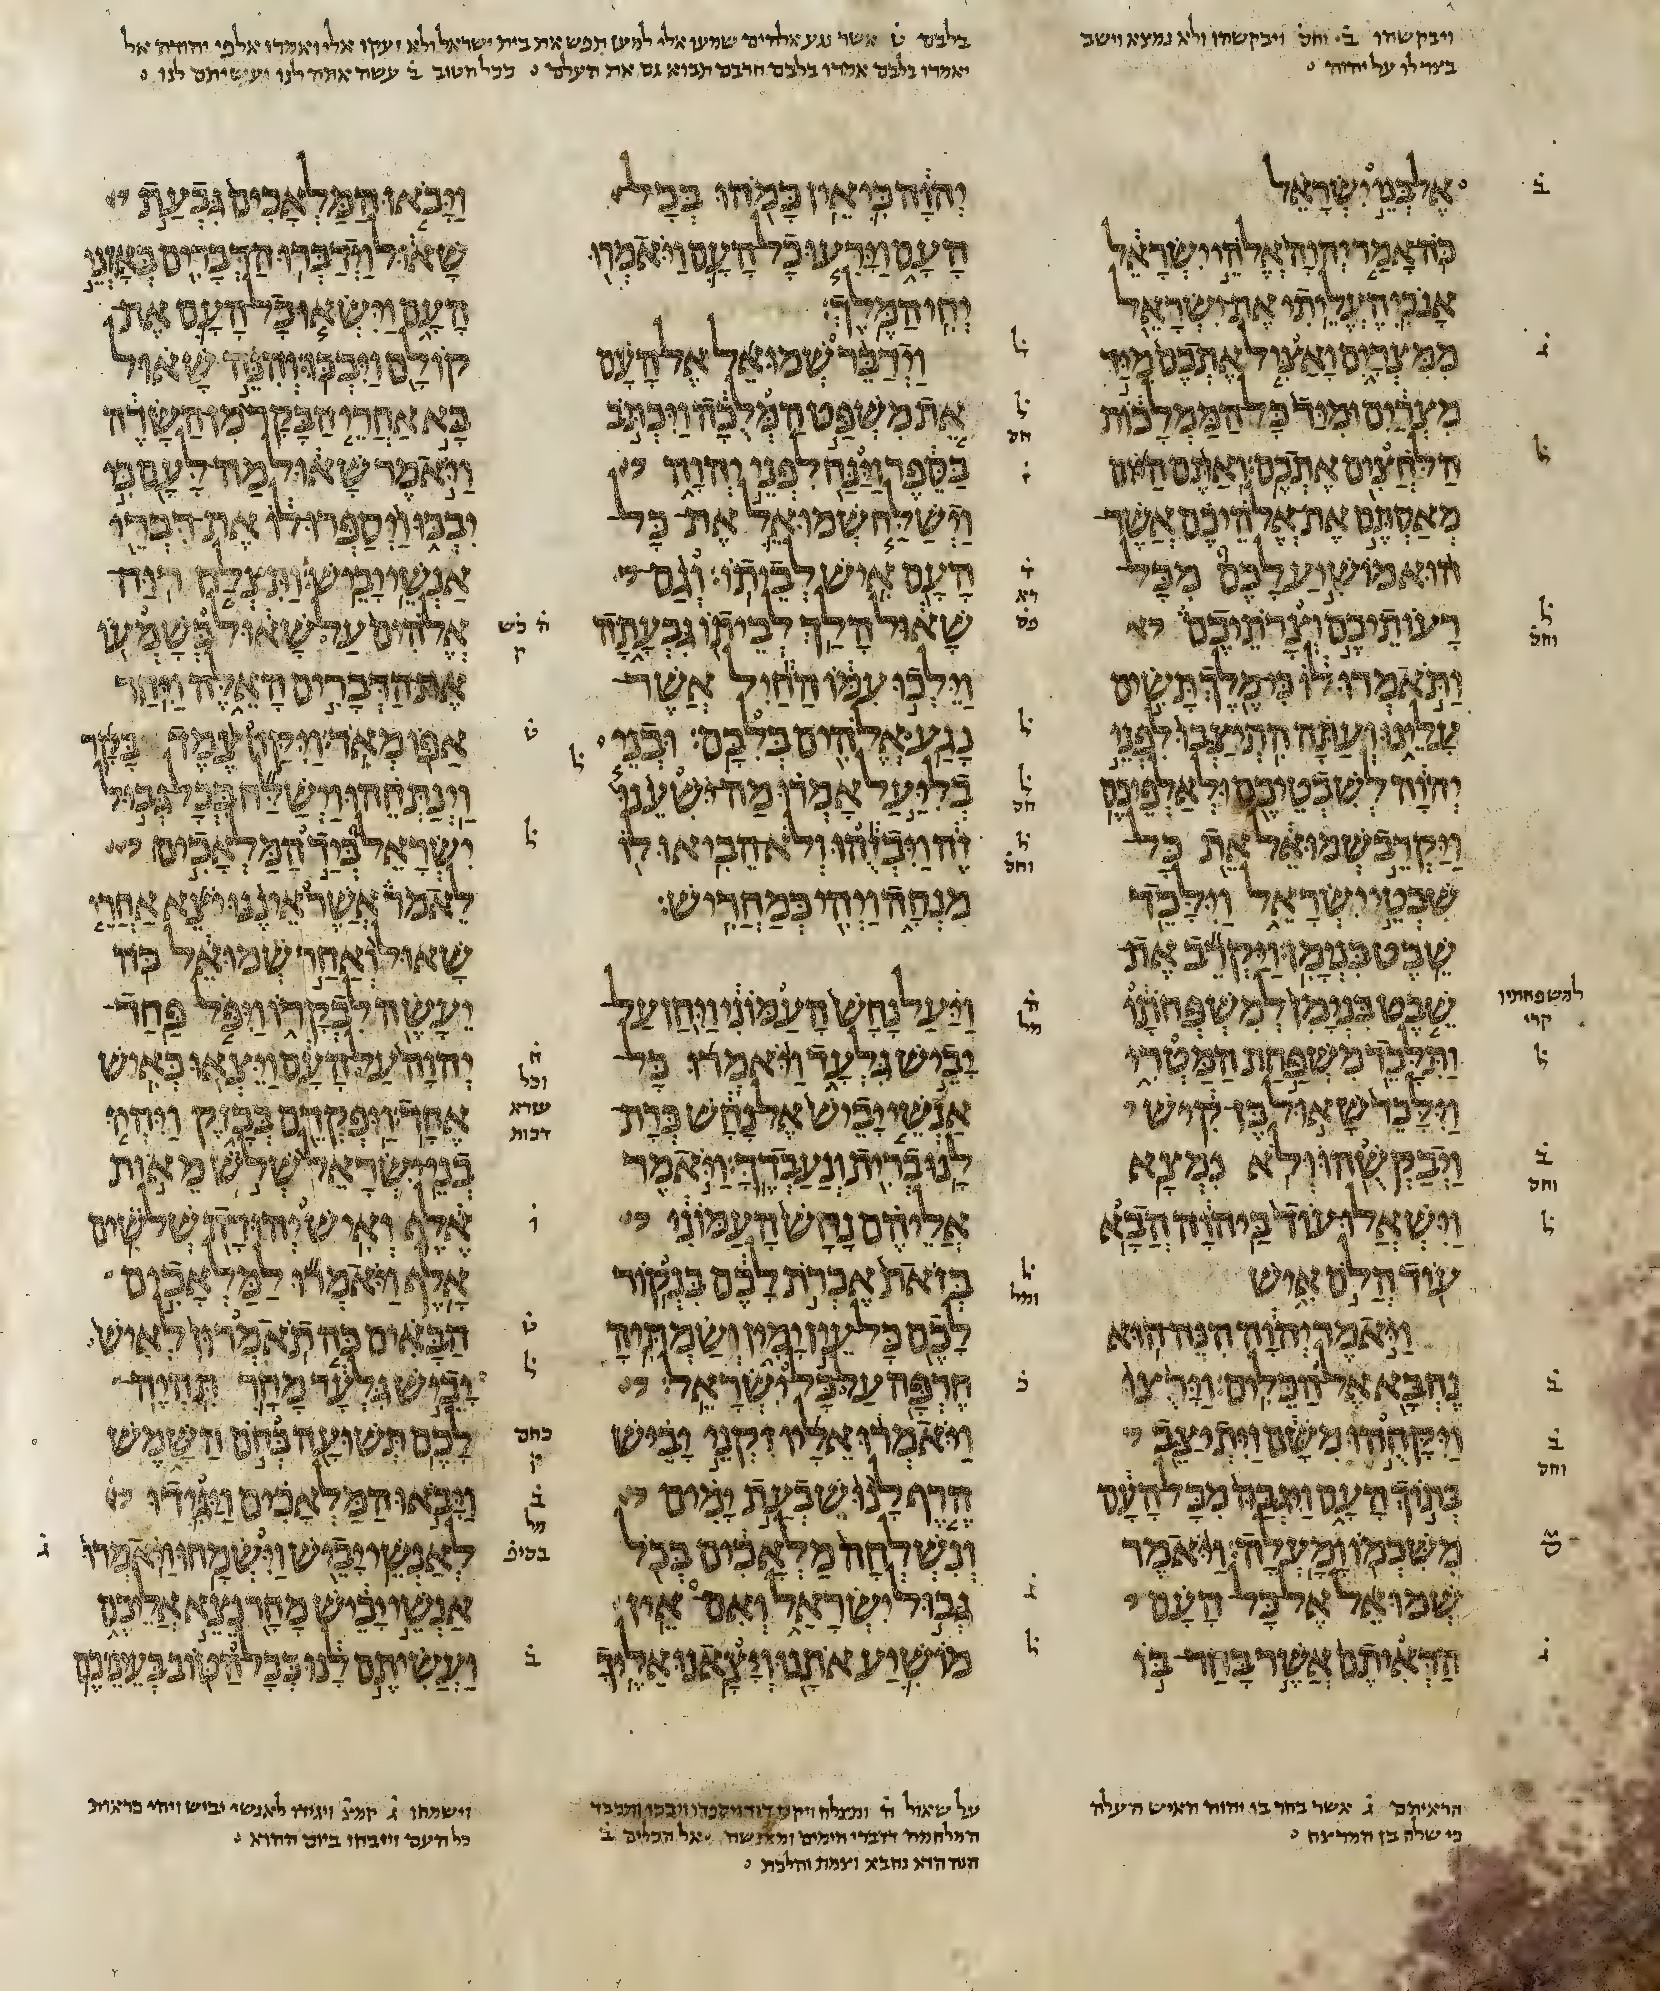 ויבקשהו ב׳ וחס׳ ויבקשהו ולא נמצא וישב
בצר לו על יהוה
בלבם ט׳ אשר נגע אלהים שמעו אלי למען תפש את בית ישראל ולא זעקו אלי ואמרו אלפי יהודה אל
יאמרו בלבם אמרו בלבם חרבם תבוא גם את העלם ככל הטוב ב׳ עשה אתה לנו ועשיתם לנו
אל בני ישראל
כה אמר יהוה אלהי ישראל
אנכי העליתי את ישראל
ממצרים ואציל אתכם מיד
מצרים ומיד כל הממלכות
הלחצים אתכם ואתם היום
מאסתם את אלהיכם אשר
הוא מושיע לכם מכל
רעותיכם וצרתיכם
ותאמרו לו כי מלך תשים
עלינו ועתה התיצבו לפני
יהוה לשבטיכם ולאלפיכם
ויקרב שמואל את כל
שבטי ישראל וילכד
שבט בנימן ויקרב את
שבט בנימן למשפחתו
ותלכד משפחת המטרי
וילכד שאול בן קיש
ויבקשהו ולא נמצא
וישאלו עוד ביהוה הבא
עוד הלם איש
ויאמר יהוה הנה הוא
נחבא אל הכלים וירצו
ויקחהו משם ויתיצב
בתוך העם ויגבה מכל העם
משכמו ומעלה ויאמר
שמואל אל כל העם
הראיתם אשר בחר בו
יהוה כי אין כמהו בכל
העם וירעו כל העם ויאמרו
יחי המלך
וידבר שמואל אל העם
את משפט המלכה ויכתב
בספר וינח לפני יהוה
וישלח שמואל את כל
העם איש לביתו וגם
שאול הלך לביתו גבעתה
וילכו עמו החיל אשר
נגע אלהים בלבם ובני
בליעל אמרו מה ישענו
זה ויבזהו ולא הביאו לו
מנחה ויהי כמחריש
ויעל נחש העמוני ויחן על
יביש גלעד ויאמרו כל
אנשי יביש אל נחש כרת
לנו ברית ונעבדך ויאמר
אליהם נחש העמוני
בזאת אכרת לכם בנקור
לכם כל עין ימין ושמתיה
חרפה על כל ישראל
ויאמרו אליו זקני יביש
הרף לנו שבעת ימים
ונשלחה מלאכים בכל
גבול ישראל ואם אין
מושיע אתנו ויצאנו אליך
ויבאו המלאכים גבעת
שאול וידברו הדברים באזני
העם וישאו כל העם את
קולם ויבכו והנה שאול
בא אחרי הבקר מן השדה
ויאמר שאול מה לעם כי
יבכו ויספרו לו את דברי
אנשי יביש ותצלח רוח
אלהים על שאול בשמעו
את הדברים האלה ויחר
אפו מאד ויקח צמד בקר
וינתחהו וישלח בכל גבול
ישראל ביד המלאכים
לאמר אשר איננו יצא אחרי
שאול ואחר שמואל כה
יעשה לבקרו ויפל פחד
יהוה על העם ויצאו כאיש
אחד ויפקדם בבזק ויהיו
בני ישראל שלש מאות
אלף ואיש יהודה שלשים
אלף ויאמרו למלאכים
הבאים כה תאמרון לאיש
יביש גלעד מחר תהיה
לכם תשועה בחם השמש
ויבאו המלאכים ויגידו
לאנשי יביש וישמחו ויאמרו
אנשי יביש מחר נצא אליכם
ועשיתם לנו ככל הטוב בעיניכם
למשפחתיו
קרי
הראיתם ג׳ אשר בחר בו יהוה האיש העלה
כי שלה בן המרצח
על שאול ה׳
המלחמה דדברי הימים אל הכלים ב׳
הנה הוא נחבא וצמת והלכת
וישמחו ג׳ קמצ׳ ויגידו לאנשי יביש ויהי כראות
כל העם ויזבחו ביום ההוא